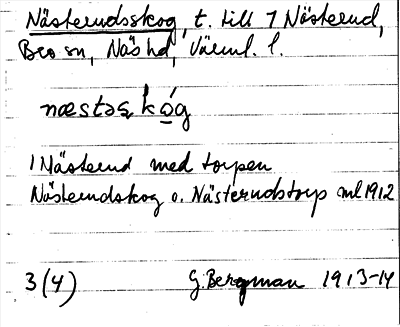 Nästerudsskog, t. till 7 Nästerud,
Bro sn, Näs hd, Värml. l.
næstəskog
1 Nästerud med torpen
Nästerudskog o. Nästerudstorp ml 1912
3(4) G. Bergman 1913-14